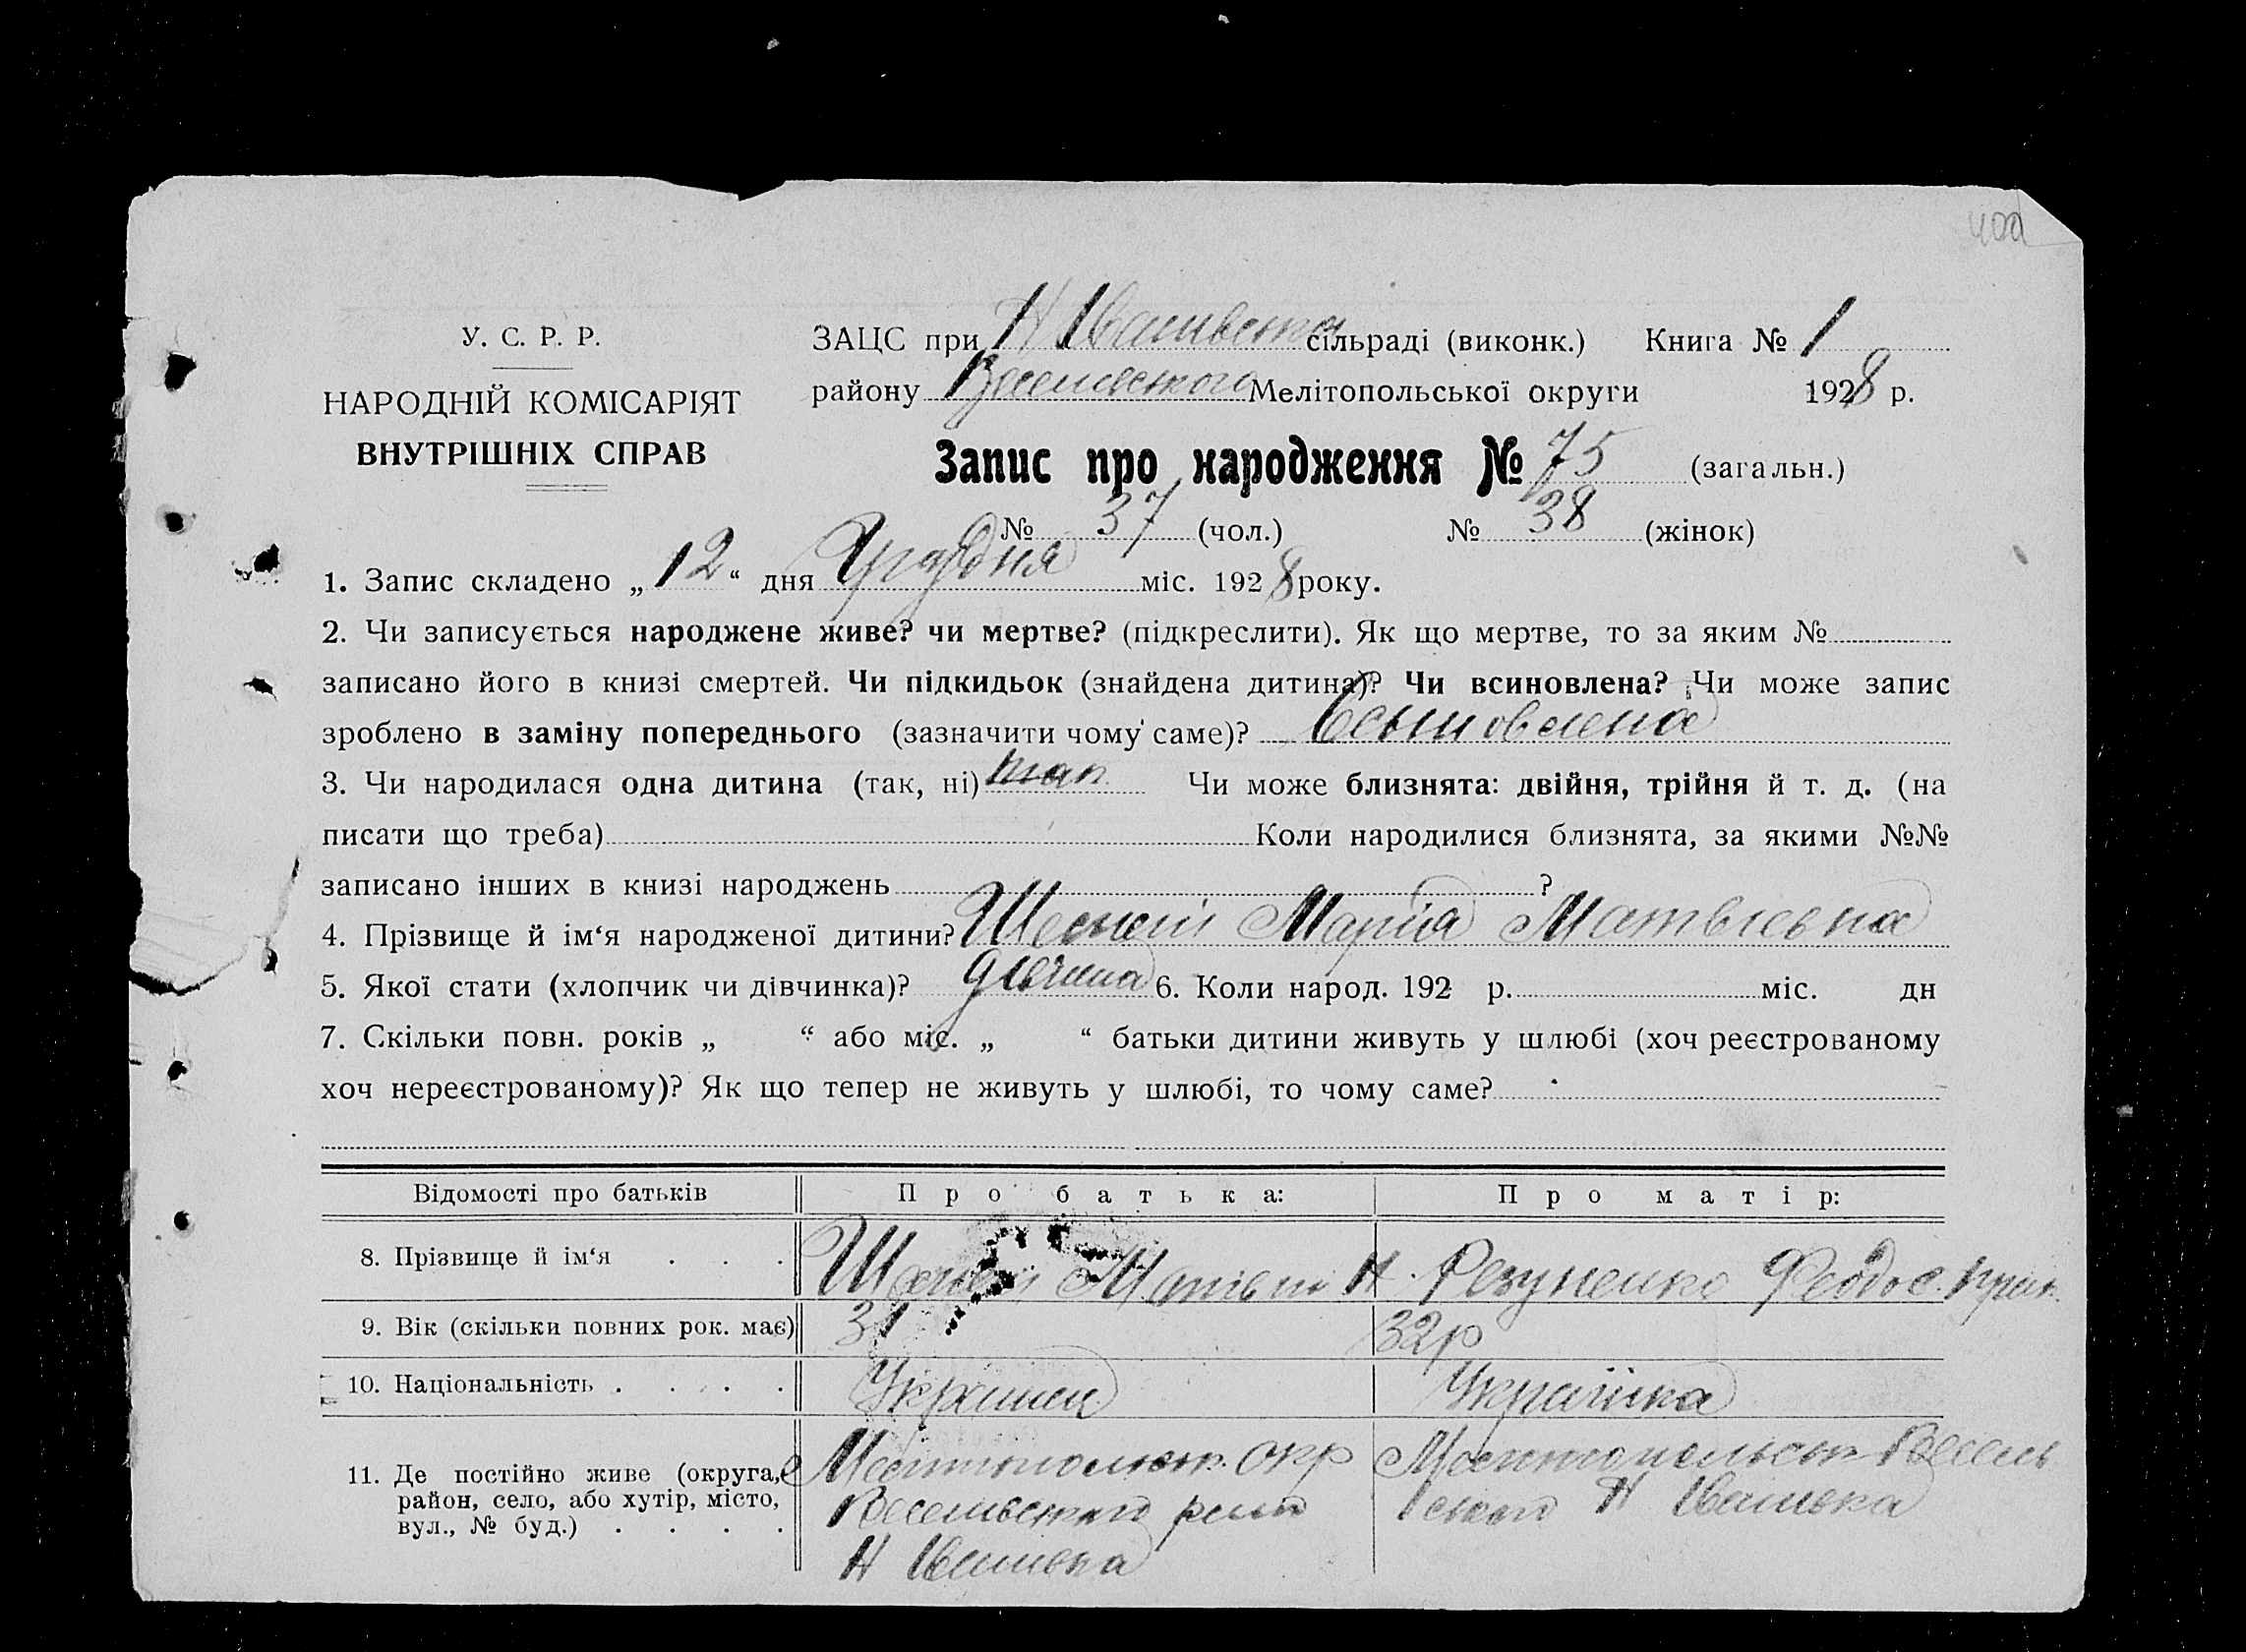 У. С. Р. Р.
НАРОДНІЙ КОМІСАРІЯТ
ВНУТРІШНІХ СПРАВ
ЗАЦС при Н Іванівська сільраді (виконк.) Книга № 1
району Веселівського Мелітопольської округи 1928 р.
Запис про народження № 75 (загальн.)
№ 37 (чол.) № 38 (жінок)
1. Запис складено „12“ дня Грудня міс. 1928 року.
2. Чи записується народжене живе? чи мертве? (підкреслити). Як що мертве, то за яким №
записано його в книзі смертей. Чи підкидьок (знайдена дитина)? Чи всиновлена? Чи може запис
зроблено в заміну попереднього (зазначити чому саме)? Всыновлена
3. Чи народилася одна дитина (так, ні) так Чи може близнята: двійня, трійня й т. д. (на
писати що треба) Коли народилися близнята, за якими №№
записано інших в книзі народжень ?
4. Прізвище й ім‘я народженої дитини? Марія
5. Якої стати (хлопчик чи дівчинка)? 6. Коли народ. 192 р. міс. дн
7. Скільки повн. років „ “ або міс. „ “ батьки дитини живуть у шлюбі (хоч реєстрованому
хоч нереєстрованому)? Як що тепер не живуть у шлюбі, то чому саме?
Відомості про батьків Про батька: Про матір:
8. Прізвище й ім‘я Н. Феодос.
9. Вік (скільки повних рок. має) 31 32р
10. Національність Українец Українка
11. Де постійно живе (округа, район, село, або хутір, місто, вул., № буд.)
окр
Н Іванівка
Н Іванівка